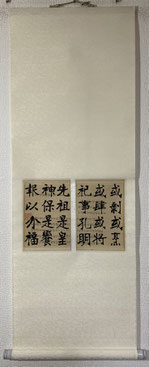 或剝或亨
或肆或將
祀事孔明
先祖是皇
神保是饗
報以介福